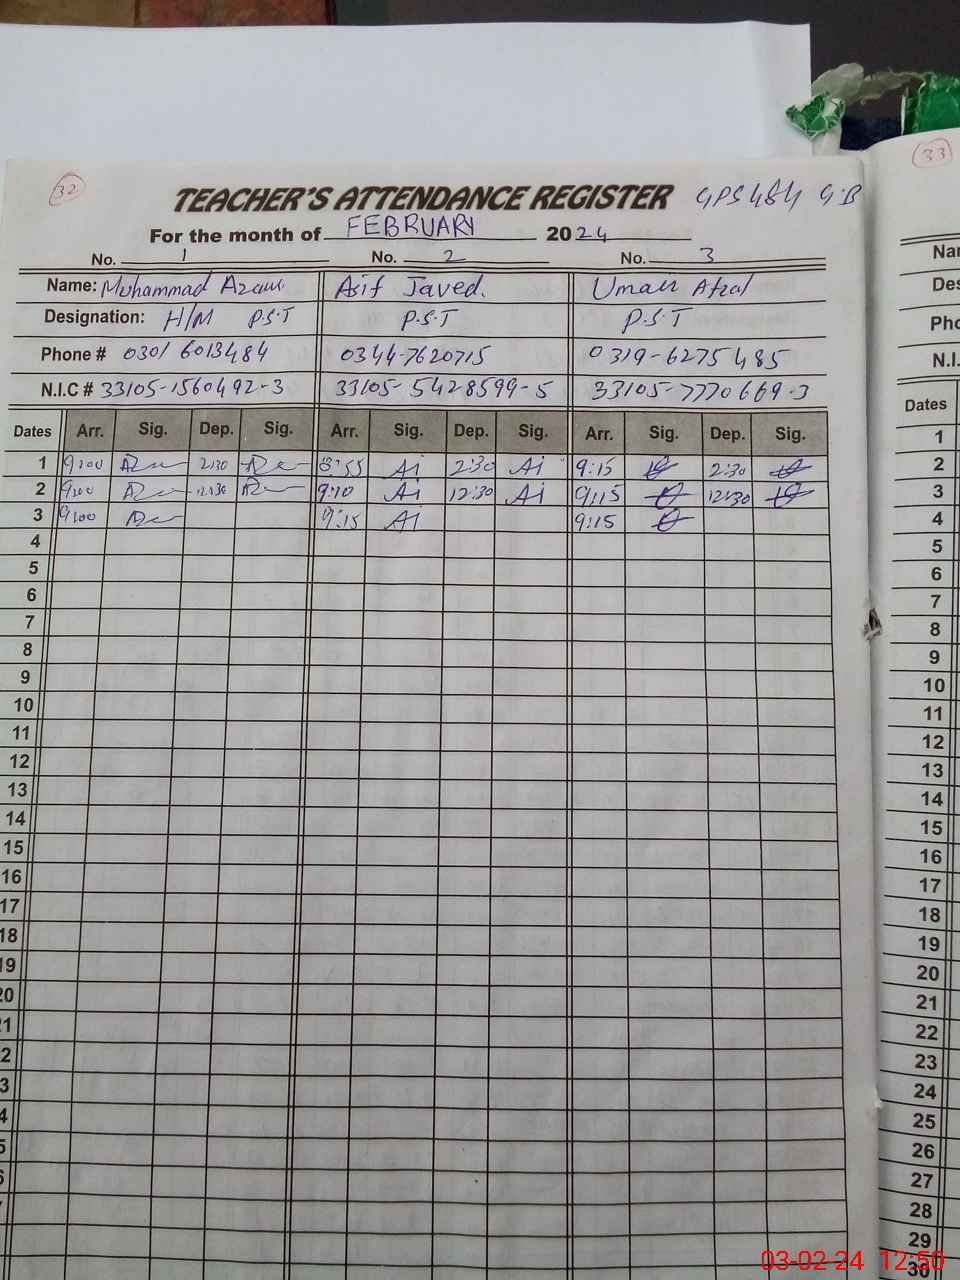 32
33
TEACHER'S ATTENDANCE REGISTER GPS 484 G.B
For the month of FEBRUARY 2024
No. 1 No. 2 No. 3
Name: Muhammad Azam Asif Javed. Umair Afzal
Designation: H/M P.S.T P.S.T P.S.T
Phone # 0301 6013484 0344-7620715 0319-6275485
N.I.C # 33105-1560492-3 33105-5428599-5 33105-7770669-3
Dates Arr. Sig. Dep. Sig. Arr. Sig. Dep. Sig. Arr. Sig. Dep. Sig.
1 9:00 2:30 8:55 2:30 9:15 2:30
2 9:00 12:30 9:10 12:30 9:15 12:30
3 9:00 9:15 9:15
4
5
6
7
8
9
10
11
12
13
14
15
16
17
18
19
20
21
2
3
4
5
6
Nar
Des
Pho
N.I.
Dates
1
2
3
4
5
6
7
8
9
10
11
12
13
14
15
16
17
18
19
20
21
22
23
24
25
26
27
28
29
30
03-02-24 12:50